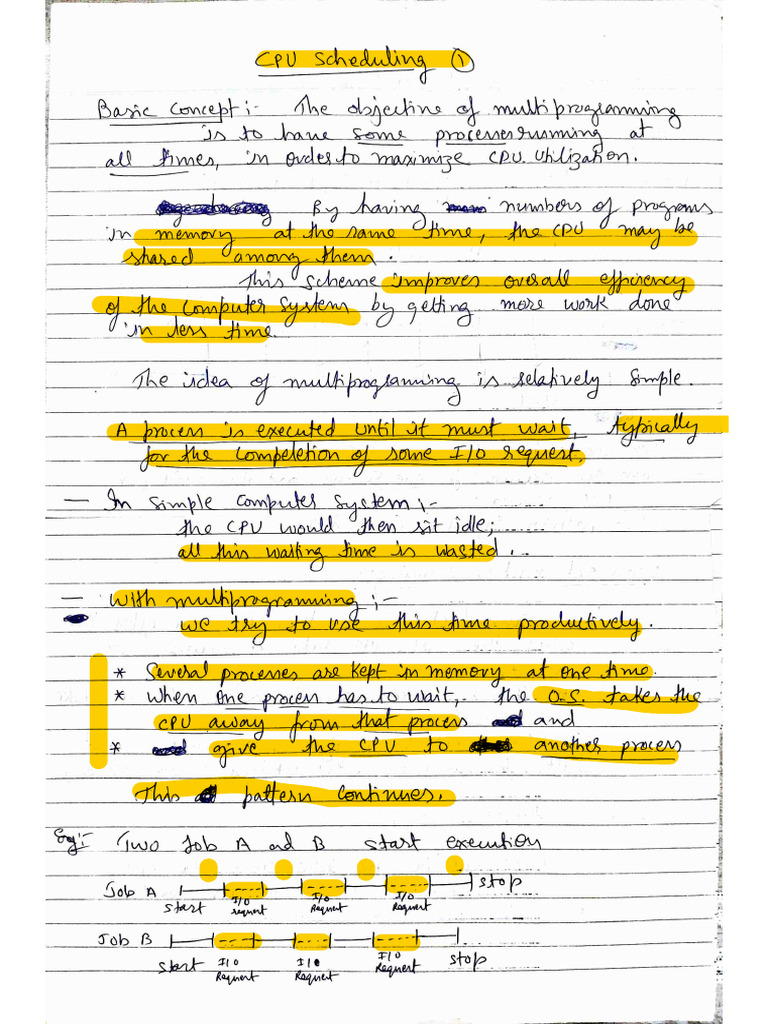 CPU Scheduling ①
Basic Concept :- The objective of multiprogramming
is to have some processes running at
all times, in order to maximize CPU utilization.
By having numbers of programs
in memory at the same time, the CPU may be
shared among them.
This scheme improves overall efficiency
of the computer system by getting more work done
in less time.
The idea of multiprogramming is relatively simple.
A process is executed until it must wait, typically
for the completion of some I/O request.
— In simple computer system :-
the CPU would then sit idle;
all this waiting time is wasted.
— With multiprogramming :-
we try to use this time productively.
* Several processes are kept in memory at one time.
* when one process has to wait, the O.S. takes the
CPU away from that process and
* give the CPU to another process
This pattern continues.
Eg:- Two Job A and B start execution
Job A stop
start I/O request I/O Request I/O Request
Job B
start I/O Request I/O Request I/O Request stop